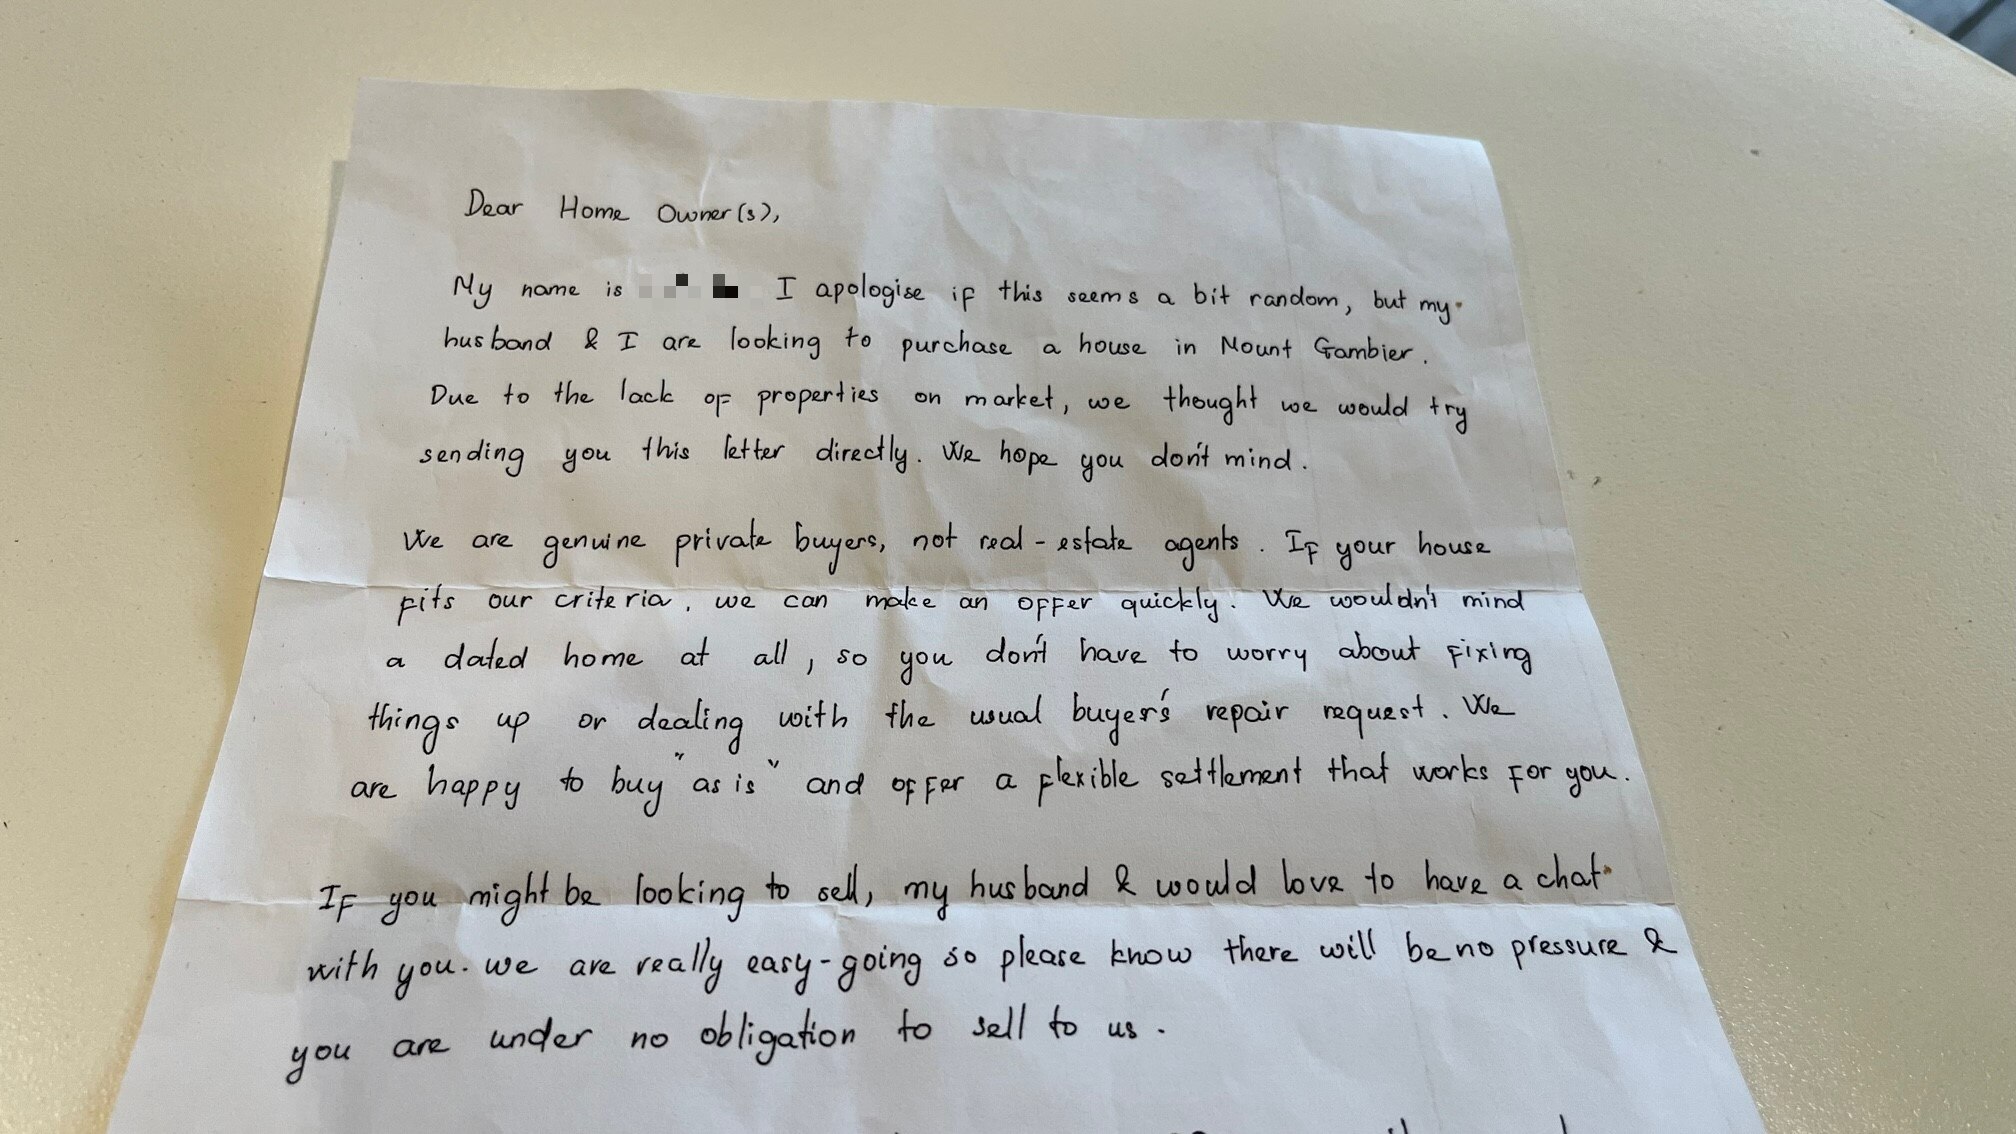 Dear Home Owner(s),
My name is I apologise if this seems a bit random, but my
husband & I are looking to purchase a house in Mount Gambier.
Due to the lack of properties on market, we thought we would try
sending you this letter directly. We hope you don't mind.
We are genuine private buyers, not real-estate agents. If your house
fits our criteria, we can make an offer quickly. We wouldn't mind
a dated home at all, so you don't have to worry about fixing
things up or dealing with the usual buyer's repair request. We
are happy to buy "as is" and offer a flexible settlement that works for you.
If you might be looking to sell, my husband & would love to have a chat
with you. we are really easy-going so please know there will be no pressure &
you are under no obligation to sell to us.